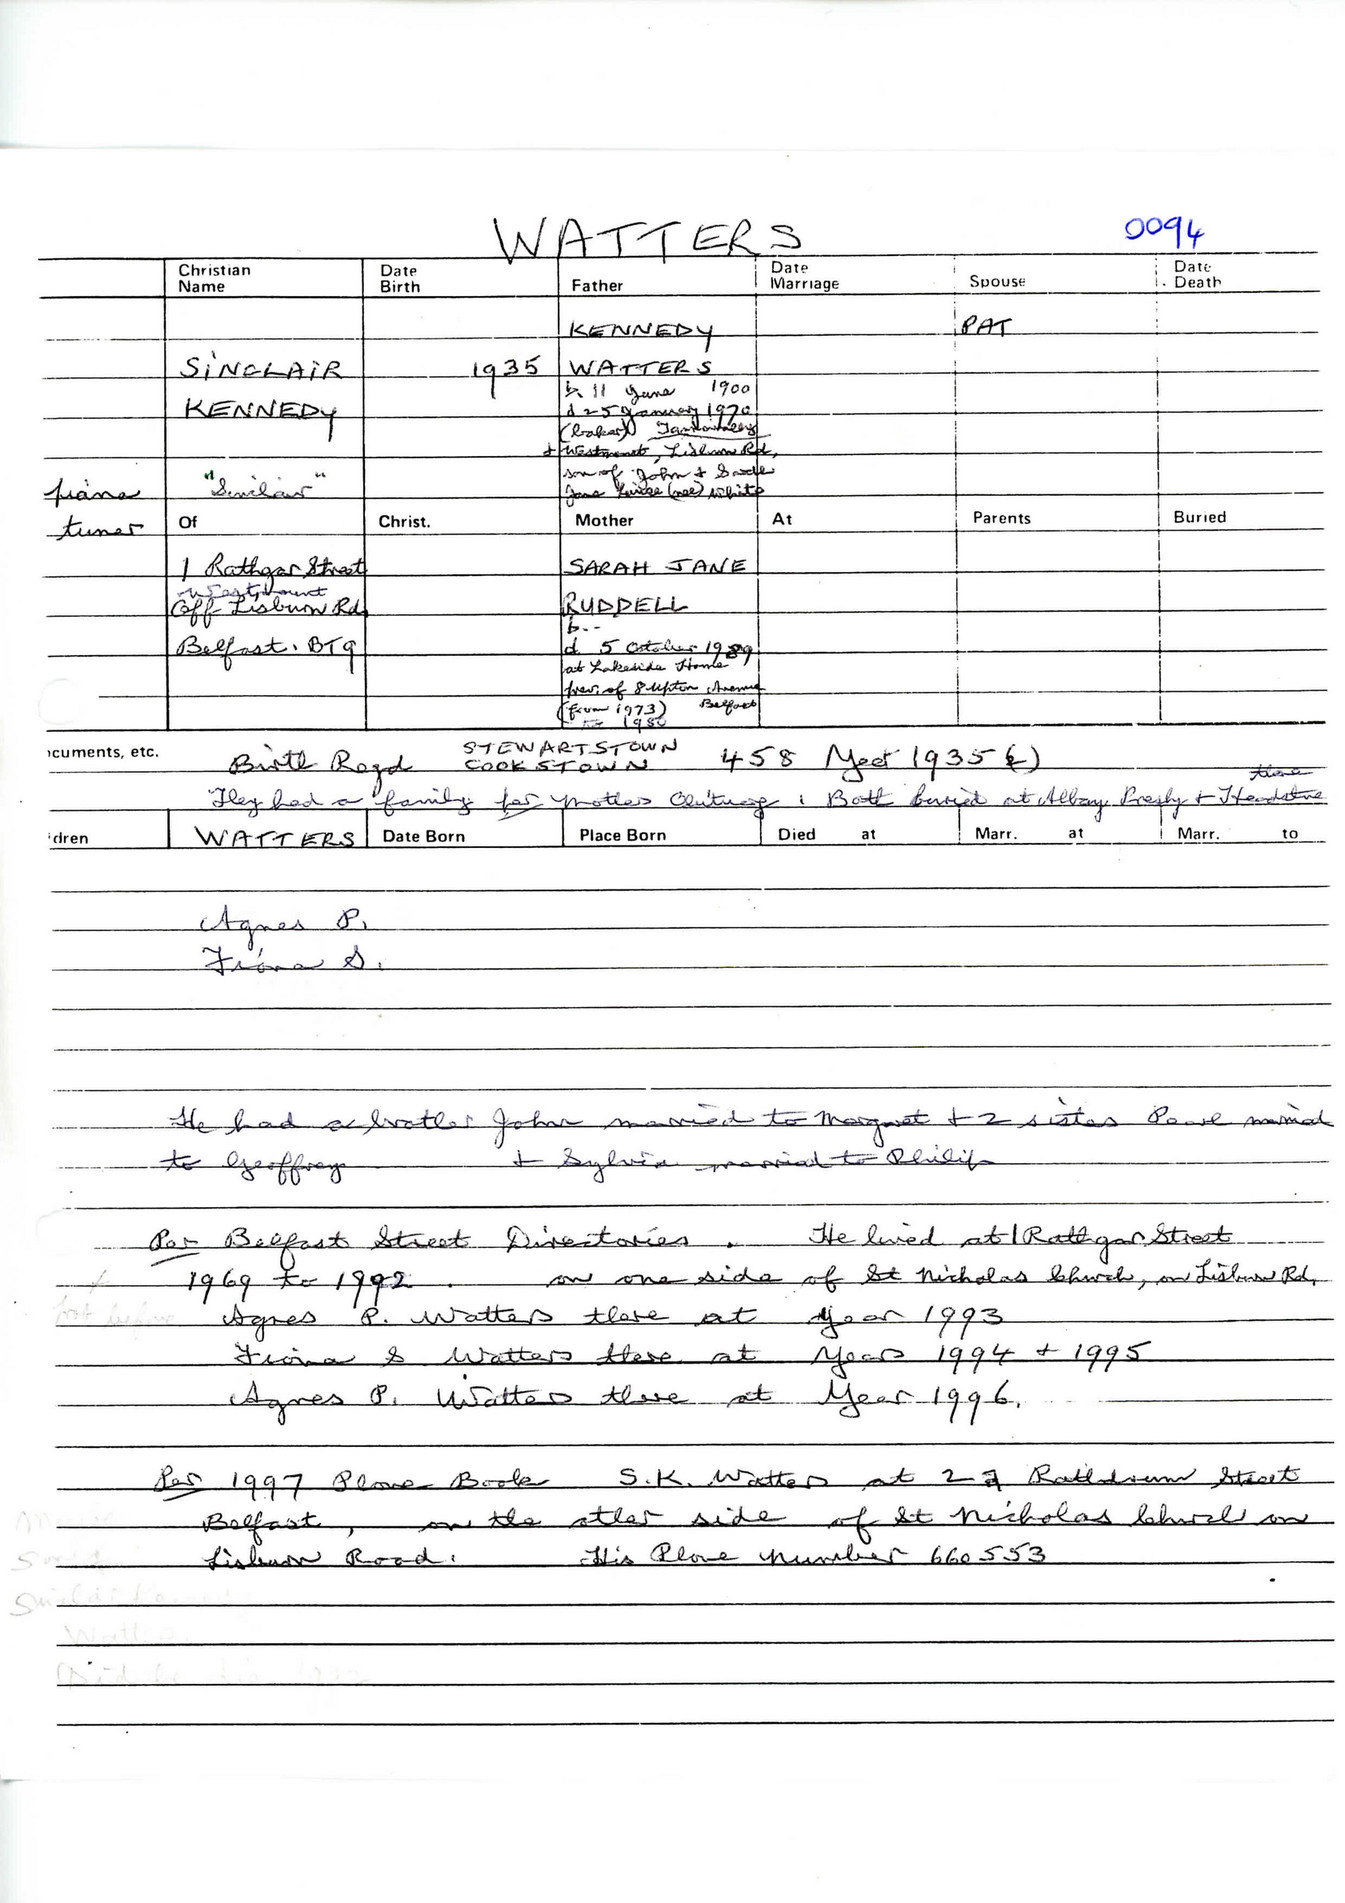 WATTERS 0094
Christian Name Date Birth Father Date Marriage Spouse Date Death
KENNEDY PAT
SINCLAIR 1935 WATTERS
b. 11 June 1900
KENNEDY d 25 January 1970
(baker)
+ Westmount, Lisburn Rd,
son of John + Sarah
piano "Sinclair" Jane (nee) White
tuner Of Christ. Mother At Parents Buried
1 Rathgar Street SARAH JANE
Westmount
Off Lisburn Rd RUDDELL
b. -
Belfast. BT9 d 5 October 1989
at Lakeside Home
prev. of 8 Upton Avenue
(from 1973) Belfast
to 1980
ocuments, etc. Birth Regd STEWARTSTOWN COOKSTOWN 458 Year 1935 )
there
They had a family per Mothers Obituary ; Both buried at Albany Presby + Headstone
dren WATTERS Date Born Place Born Died at Marr. at Marr. to
Agnes P.
Fiona S.
He had a brother John married to Margaret + 2 sisters Pearl married
to Geoffrey + Sylvia married to Philip
Per Belfast Street Directories. He lived at 1 Rathgar Street
1969 to 1992. on one side of St Nicholas Church, on Lisburn Rd.
Agnes P. Watters there at year 1993
Fiona S Watters there at Years 1994 + 1995
Agnes P. Watters there at Year 1996.
Per 1997 Phone Book S.K. Watters at Rathdrum Street
Belfast, on the other side of St Nicholas Church on
Lisburn Road. His Phone number 660553